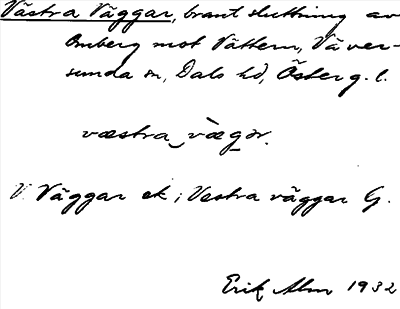 Västra Väggar, brant sluttning av
Omberg mot Vättern, Väver-
sunda sn, Dals hd, Österg. l.
væstra vægər.
V. Väggar ek; Vestra väggar G.
Erik Alm 1932